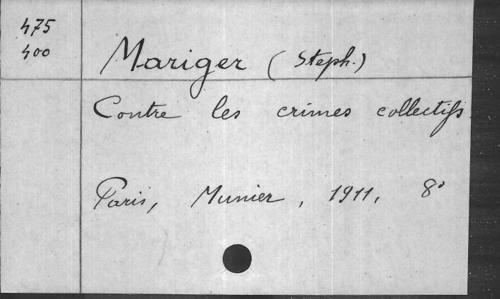 475
400
Mariger (Steph.)
Contre les crimes collectifs.
Paris, Munier, 1911, 8°